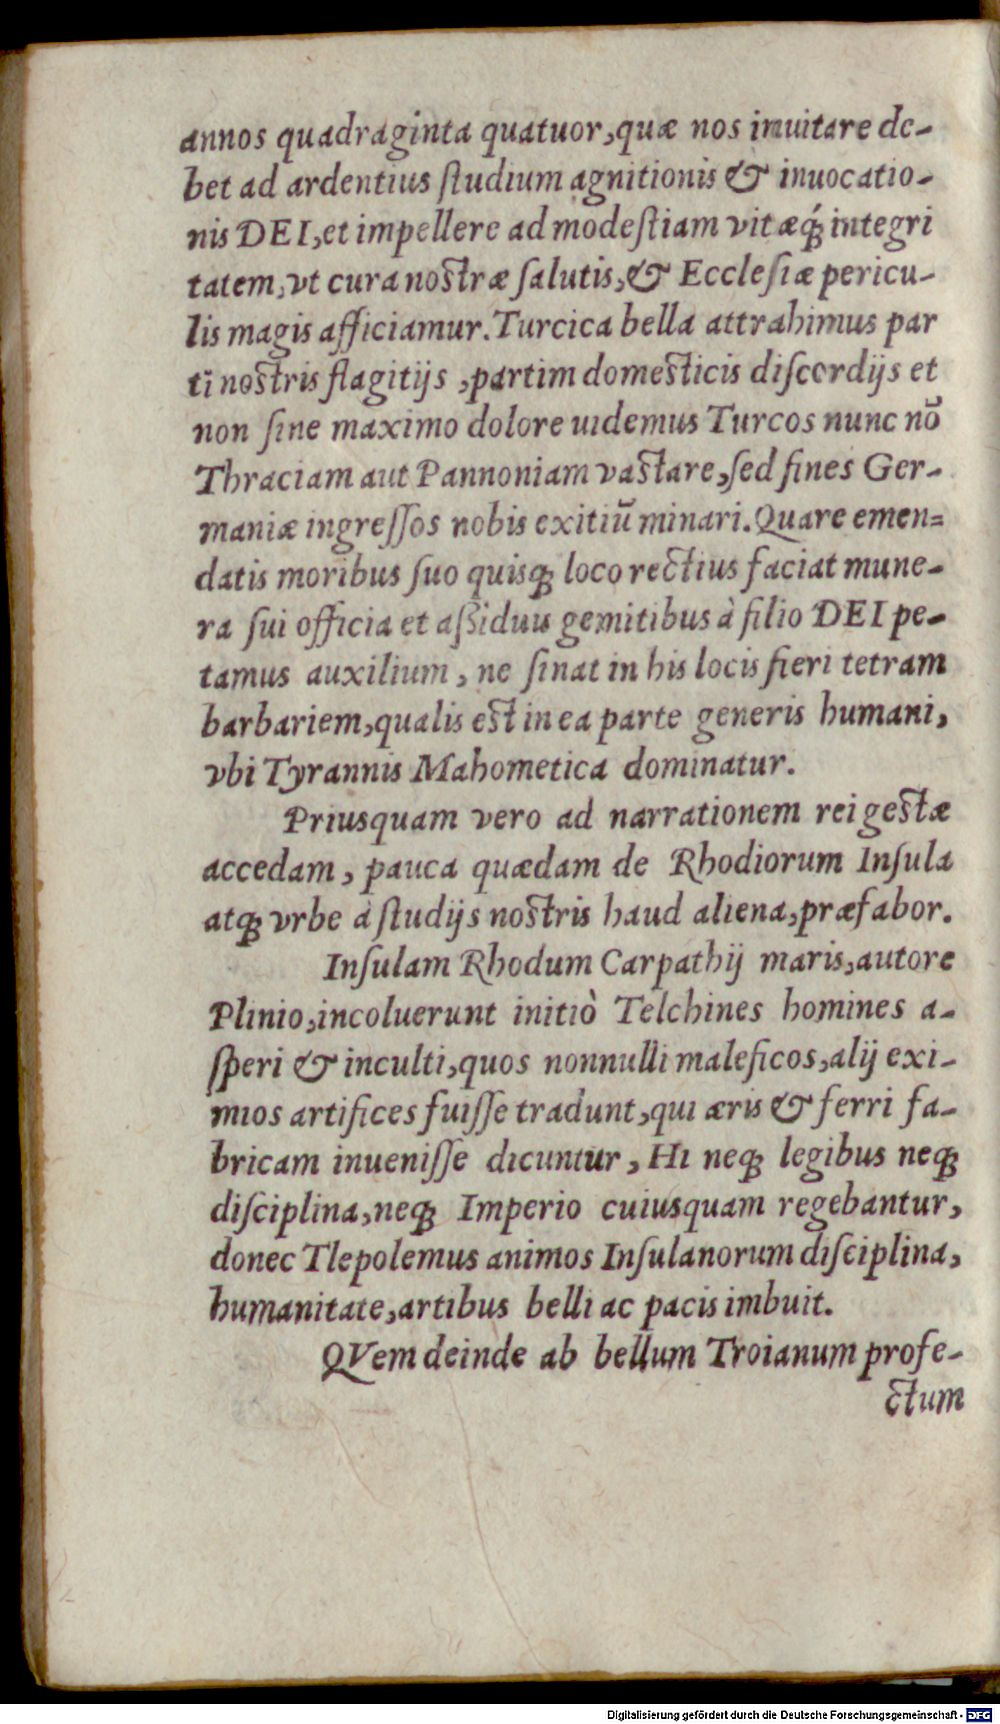 annos quadraginta quatuor, quæ nos inuitare de-
bet ad ardentius ſtudium agnitionis & inuocatio-
nis DEI, et impellere ad modeſtiam vitæq́ꝫ integri
tatem, vt cura noſtræ ſalutis, & Eccleſiæ pericu-
lis magis afficiamur. Turcica bella attrahimus par
tī noſtris flagitijs, partim domeſticis diſcordijs et
non ſine maximo dolore uidemus Turcos nunc nō
Thraciam aut Pannoniam vaſtare, ſed fines Ger-
maniæ ingreſſos nobis exitiū minari. Quare emen=
datis moribus ſuo quisqꝫ loco rectius faciat mune-
ra ſui officia et aßiduis gemitibus à filio DEI pe-
tamus auxilium, ne ſinat in his locis fieri tetram
barbariem, qualis eſt in ea parte generis humani,
vbi Tyrannis Mahometica dominatur.
Priusquam vero ad narrationem rei geſtæ
accedam, pauca quædam de Rhodiorum Inſula
atqꝫ vrbe à ſtudijs noſtris haud aliena, præfabor.
Inſulam Rhodum Carpathij maris, autore
Plinio, incoluerunt initiò Telchines homines a-
ſperi & inculti, quos nonnulli maleficos, alij exi-
mios artifices fuiſſe tradunt, qui æris & ferri fa-
bricam inueniſſe dicuntur, Hi neqꝫ legibus neqꝫ
diſciplina, neqꝫ Imperio cuiusquam regebantur,
donec Tlepolemus animos Inſulanorum diſciplina,
humanitate, artibus belli ac pacis imbuit.
QVem deinde ab bellum Troianum profe-
ctum
Digitalisierung gefördert durch die Deutsche Forschungsgemeinschaft - DFG